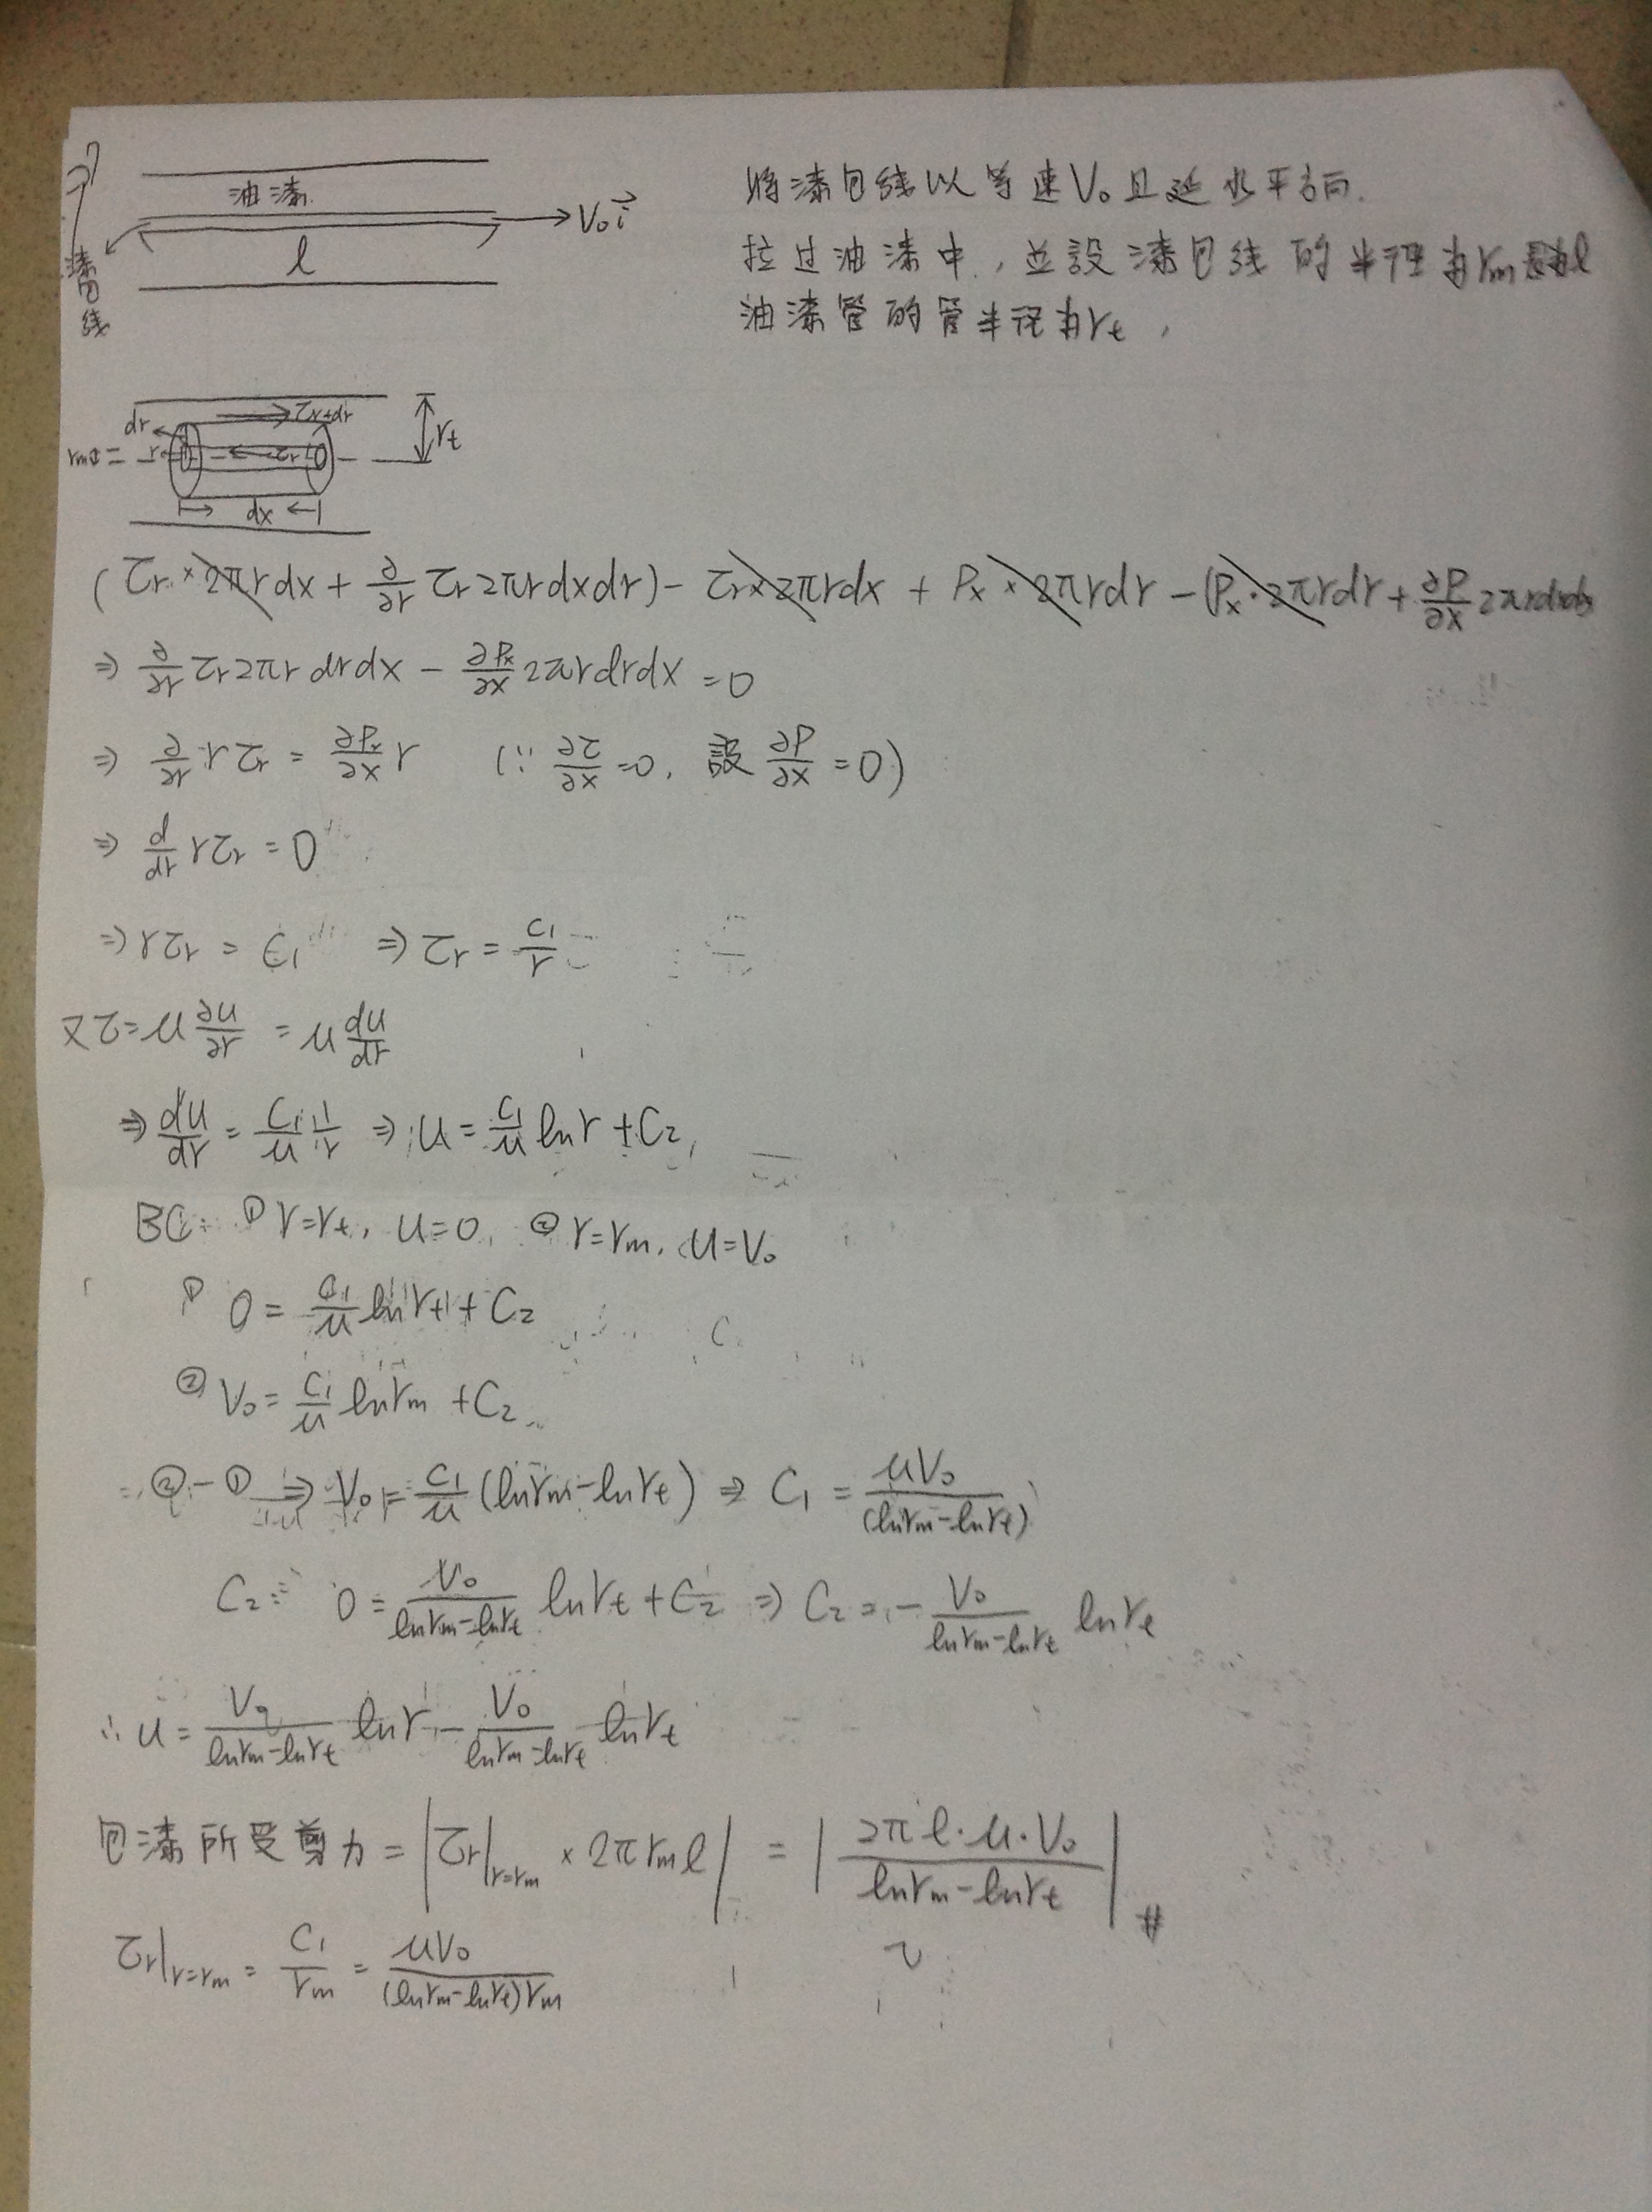 油漆
V₀i⃗
l
漆包线
将漆包线以等速V₀且延水平方向.
拉过油漆中, 並設漆包线的半徑為rₘ 長為l
油漆管的管半径為rₜ,
dr
τr+dr
rₜ
rₘ
r
τr
dx
(τr × 2πrdx + ∂/∂r τr 2πrdxdr) - τr × 2πrdx + Pₓ × 2πrdr - (Pₓ · 2πrdr + ∂P/∂x 2πrdrdx
⇒ ∂/∂r τr 2πr drdx - ∂Pₓ/∂x 2πrdrdx = 0
⇒ ∂/∂r rτr = ∂Pₓ/∂x r (∵ ∂τ/∂x = 0, 設 ∂P/∂x = 0)
⇒ d/dr rτr = 0
⇒ rτr = C₁ ⇒ τr = C₁/r
又τ = μ ∂u/∂r = μ du/dr
⇒ du/dr = C₁/μ 1/r ⇒ u = C₁/μ ln r + C₂
BC: ① r=rₜ, u=0, ② r=rₘ, u=V₀
① 0 = C₁/μ ln rₜ + C₂
② V₀ = C₁/μ ln rₘ + C₂
② - ① ⇒ V₀ = C₁/μ (ln rₘ - ln rₜ) ⇒ C₁ = μV₀/(ln rₘ - ln rₜ)
C₂: 0 = V₀/(ln rₘ - ln rₜ) ln rₜ + C₂ ⇒ C₂ = - V₀/(ln rₘ - ln rₜ) ln rₜ
∴ u = V₀/(ln rₘ - ln rₜ) ln r - V₀/(ln rₘ - ln rₜ) ln rₜ
包漆所受剪力 = |τr|r=rₘ × 2πrₘl| = |2πl·μ·V₀/(ln rₘ - ln rₜ)| #
τr|r=rₘ = C₁/rₘ = μV₀/(ln rₘ - ln rₜ)rₘ